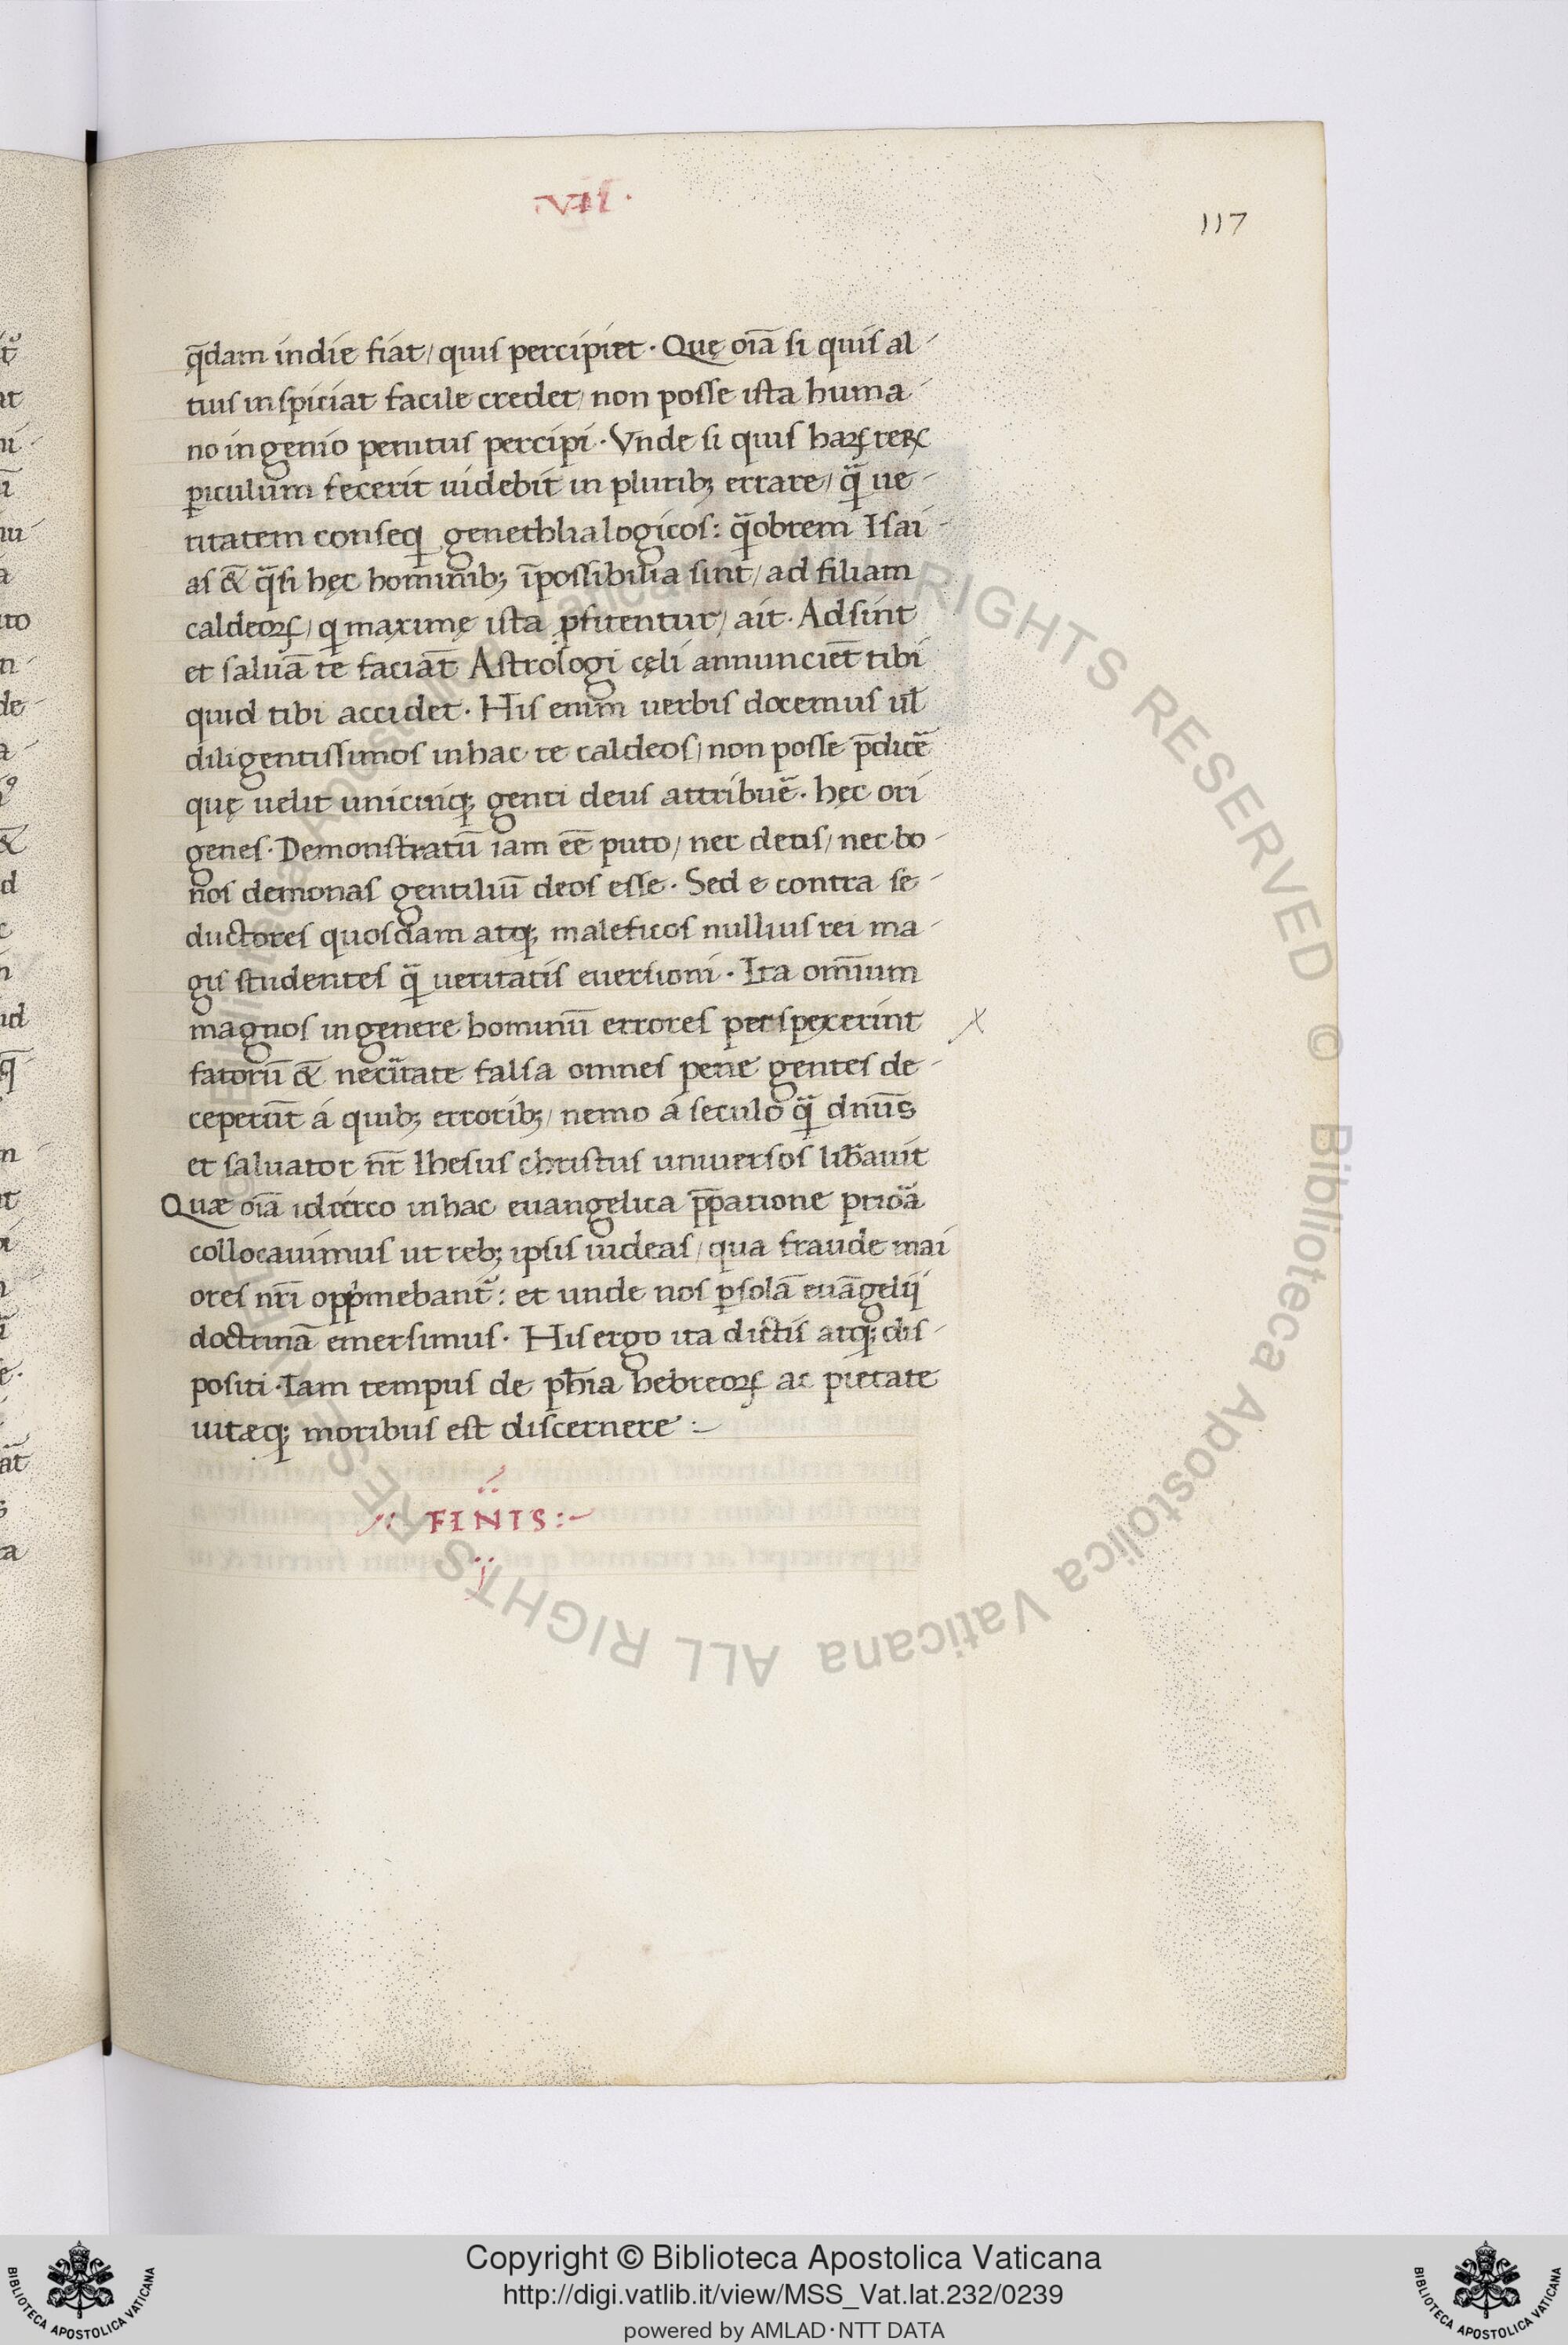 ·VII·
117
q̄dam in die fiat / quis percipiet · Quę oīa si quis al-
tius inspiciat facile credet / non posse ista huma-
no ingenio penitus percipi · Vnde si quis haꝝ reꝝ
ꝑiculum fecerit uidebit in plurib; errare / q̄ ue-
ritatem conseqi genethlialogicos : q̄obrem Isai-
as & q̄si hęc hominib; īpossibilia sint / ad filiam
caldeoꝝ / qi maximę ista ꝓfitentur / ait · Adsint
et saluā te faciāt Astrologi cęli annunciēt tibi
quid tibi accidet · His enim uerbis docemus ul̄
diligentissimos in hac re caldeos / non posse p̄dicē
quę uelit unicuiq; genti deus attribuē · hęc ori
genes · Demonstratū iam eē puto / nec deus / nec bo-
nos demonas gentiliū deos esse · Sed e contra se-
ductores quosdam atq; maleficos nullius rei ma-
gis studentes q̄ ueritatis euersioni · Ita omnium
magnos in genere hominū errores perspexerint
fatorū & necītate falsa omnes pene gentes de-
ceperūt á quib; errorib; / nemo á seculo q̄ dn̄us
et saluator nr̄ Ihesus christus uniuersos lib̄auit
Quæ oīa idcirco in hac euangelica p̄paratione priōa
collocauimus ut reb; ipsis uideas / qua fraude mai
ores nr̄i opp̍mebant᷑ : et unde nos ꝑ solā euāgelij
doctrinā emersimus · His ergo ita dictis atq; dis-
positi · Iam tempus de ph̄ia hebreoꝝ ac pietate
uitæq; moribus est discernere :-
FINIS :-
Copyright © Biblioteca Apostolica Vaticana
http://digi.vatlib.it/view/MSS_Vat.lat.232/0239
powered by AMLAD·NTT DATA